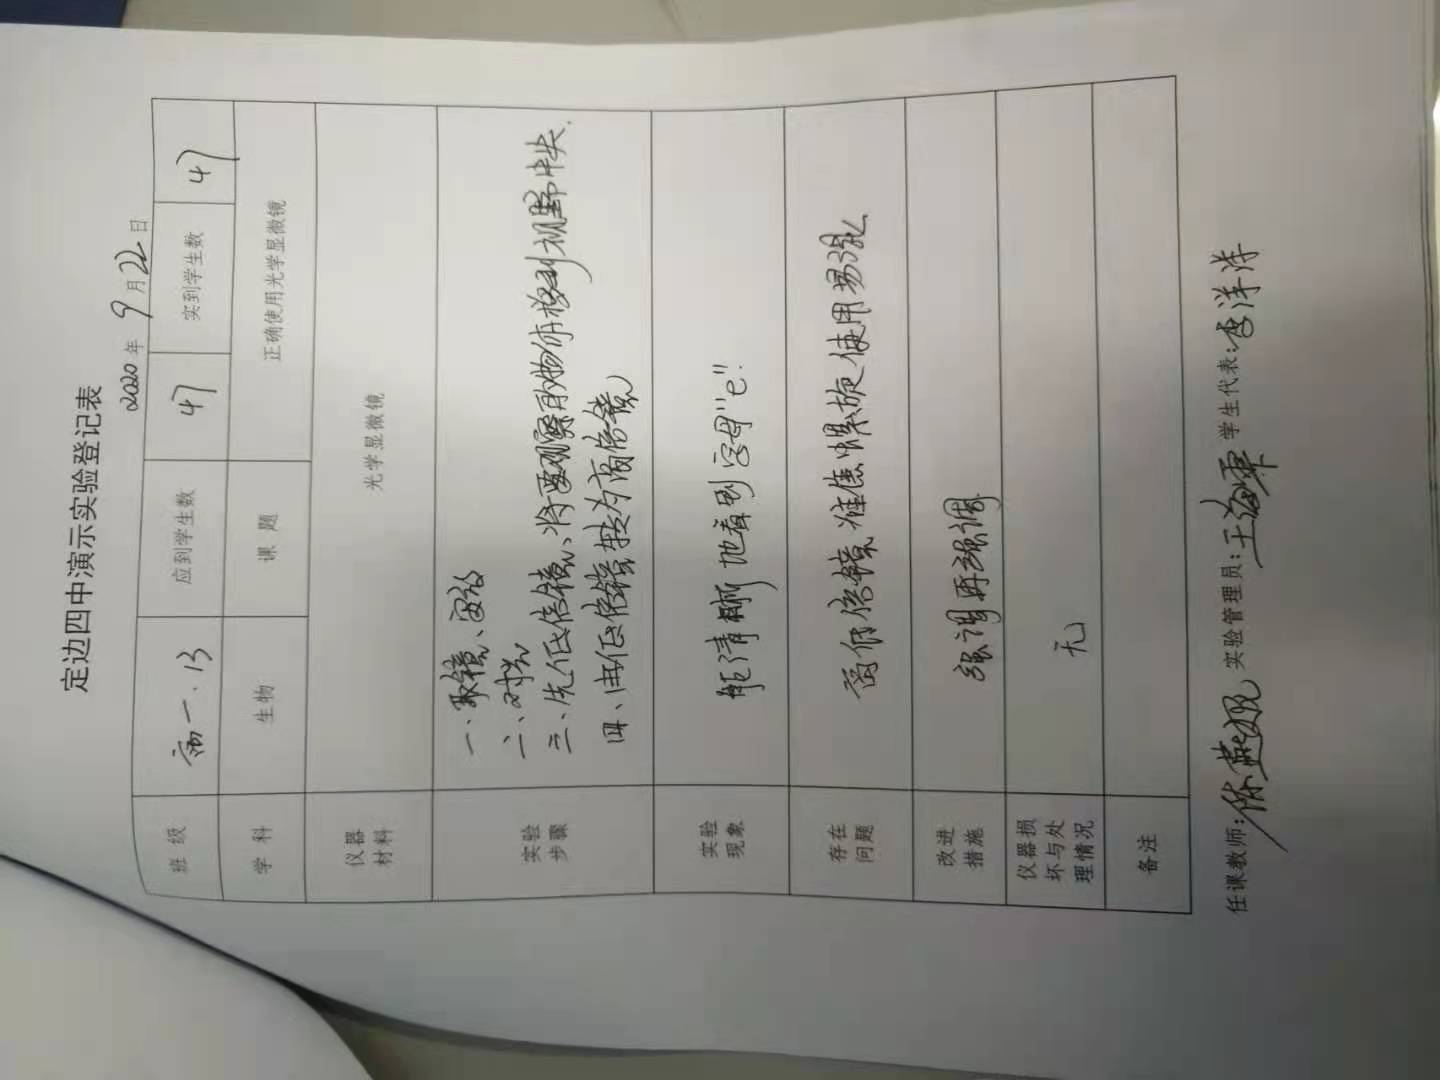 定边四中演示实验登记表
2020年9月22日
班级 高一.13 应到学生数 47 实到学生数 47
学科 生物 课题 正确使用光学显微镜
仪器
材料
光学显微镜
实验
步骤
一、取镜、安放
二、对光
三、先低倍镜、将要观察的物体移到视野中央.
四、由低倍镜转为高倍镜
实验
现象
能清晰地看到字母"e".
存在
问题
高低倍镜准焦螺旋使用易混
改进
措施
强调再强调
仪器损
坏与处
理情况
无
备注
任课教师: 实验管理员:王海军 学生代表:李洋洋